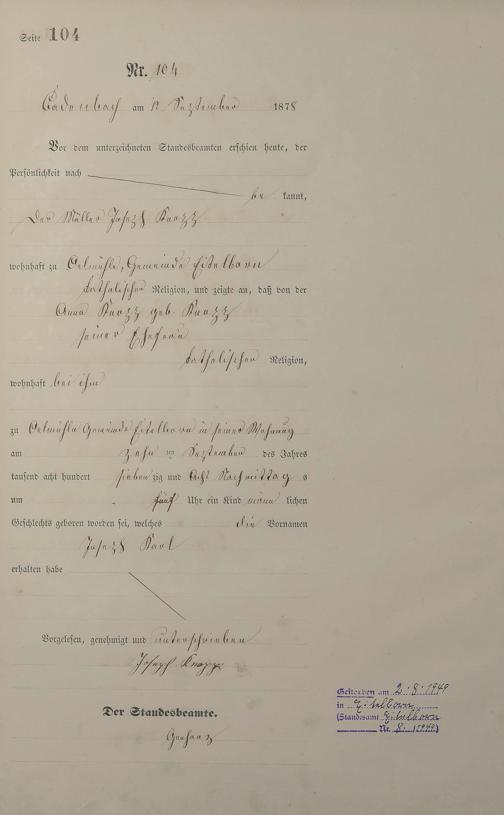 Seite 104
Nr. 104
Cadenbach am September 1878
Vor dem unterzeichneten Standesbeamten erschien heute, der
Persönlichkeit nach
be kannt,
der Müller Joseph Knopp
wohnhaft zu Oelmühle, Gemeinde Eitelborn
katholischer Religion, und zeigte an, daß von der
Anna Knopp geb. Knopp
seiner Ehefrau
katholischer Religion,
wohnhaft bei ihm
zu Oelmühle Gemeinde Eitelborn in seiner Wohnung
am zehn ten September des Jahres
tausend acht hundert sieben zig und acht Nachmittag s
um fünf Uhr ein Kind männ lichen
Geschlechts geboren worden sei, welches die Vornamen
Joseph Karl
erhalten habe
Vorgelesen, genehmigt und unterschrieben
Joseph Knopp
Der Standesbeamte.
Gestorben am 2.8.1949
in Eitelborn
(Standesamt Eitelborn
Nr. 8/1949)